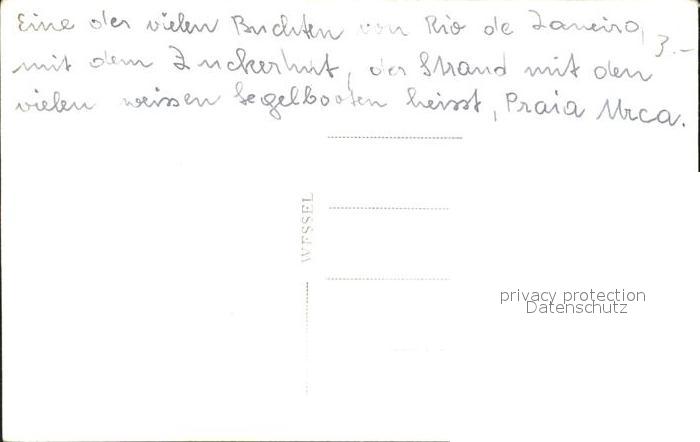 Eine der vielen Buchten von Rio de Janeiro, 3.-
mit dem Zuckerhut, der Strand mit den
vielen weissen Segelbooten heisst, Praia Urca.
WESSEL
privacy protection
Datenschutz